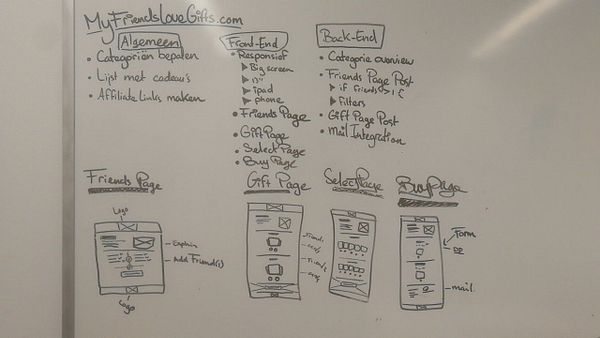 MyFriendsLoveGifts.com
Algemeen
• Categoriën bepalen
• Lijst met cadeau's
• Affiliate Links maken
Front-End
• Responsief
▶ Big screen
▶ 13"
▶ ipad
▶ phone
• Friends Page
• Gift Page
• Select Page
• Buy Page
Back-End
• Categorie overview
• Friends Page Post
▶ if friends > 1 {
▶ Filters
• Gift Page Post
• Mail Integration
Friends Page
Logo
Explain
Add Friend(s)
Logo
Gift Page
Friend 1
Friend 2
Select Page
Buy Page
Form
mail